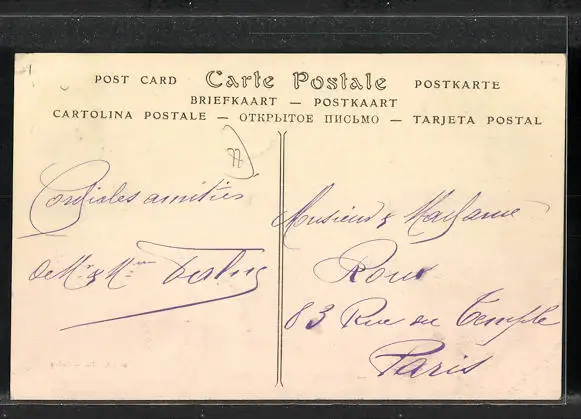 POST CARD Carte Postale POSTKARTE
BRIEFKAART — POSTKAART
CARTOLINA POSTALE — ОТКРЫТОЕ ПИСЬМО — TARJETA POSTAL
77
Cordiales amitiés
de Mr & Mme
Monsieur & Madame
Roux
83 Rue du Temple
Paris